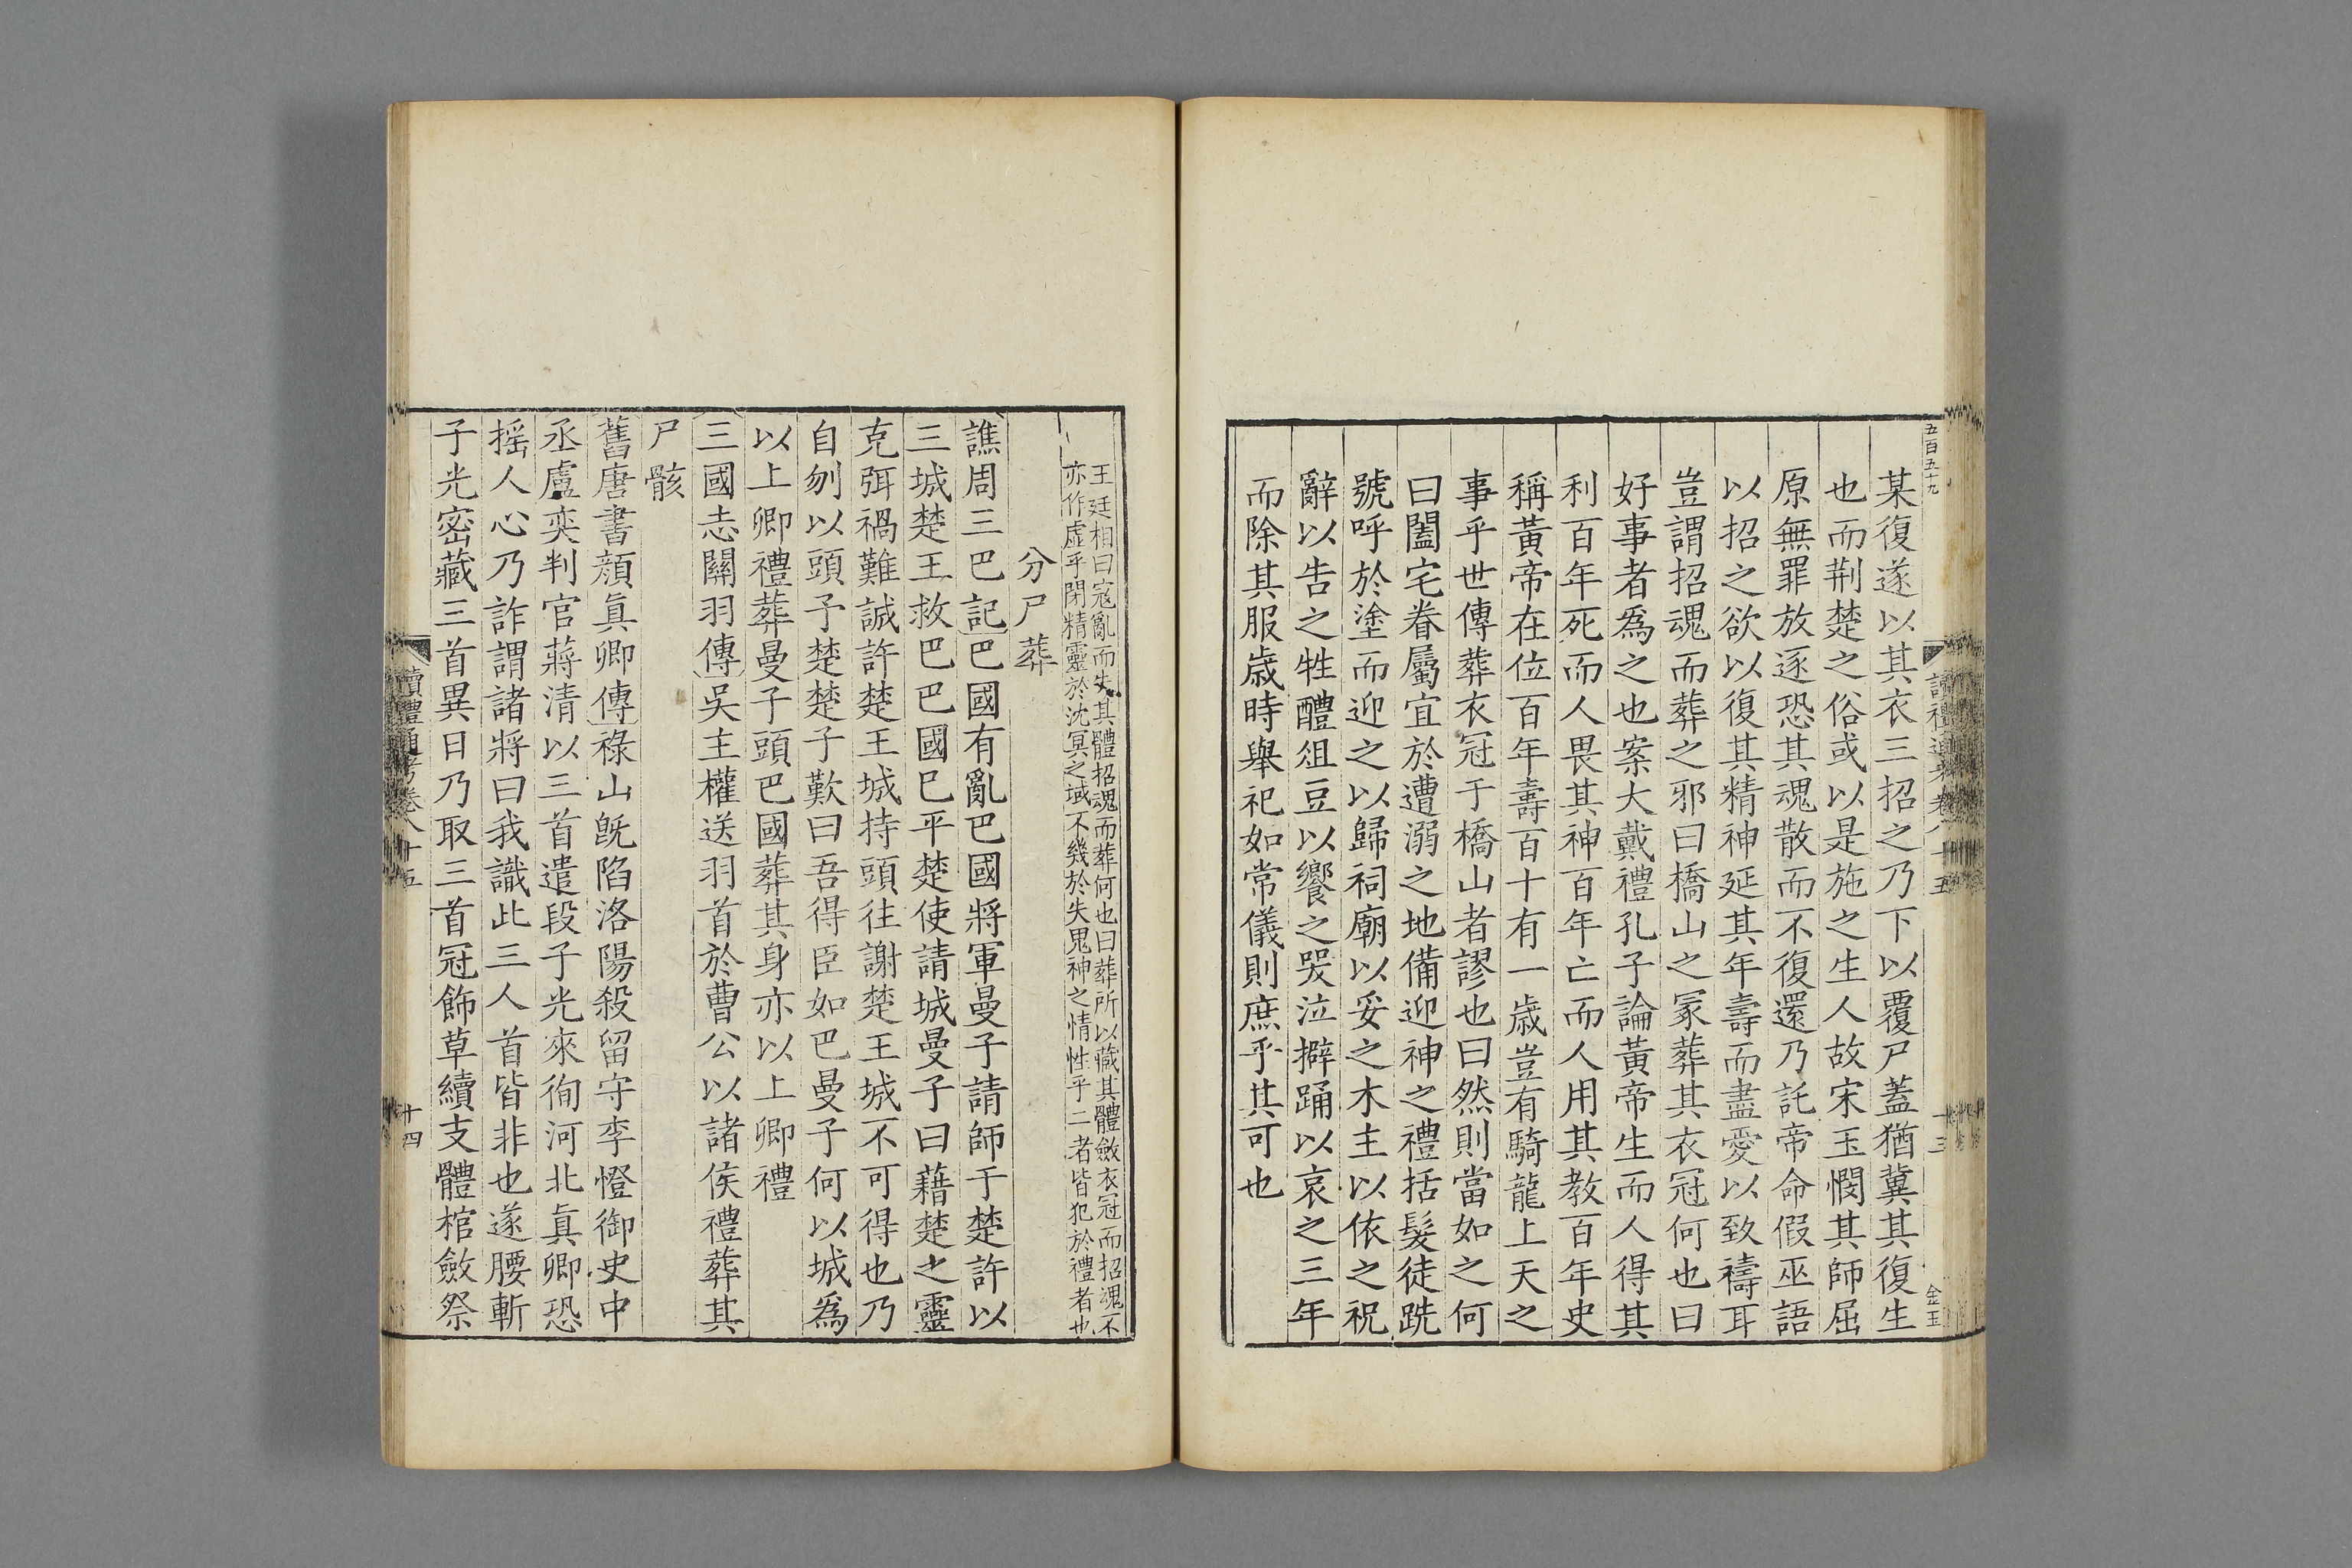 五百五十九
某復遂以其衣三招之乃下以覆尸蓋猶冀其復生
也而荆楚之俗或以是施之生人故宋玉憫其師屈
原無罪放逐恐其魂散而不復還乃託帝命假巫語
以招之欲以復其精神延其年壽而盡愛以致禱耳
豈謂招魂而葬之邪曰橋山之冢葬其衣冠何也曰
好事者爲之也案大戴禮孔子論黃帝生而人得其
利百年死而人畏其神百年亡而人用其教百年史
稱黃帝在位百年壽百十有一歲豈有騎龍上天之
事乎世傳葬衣冠于橋山者謬也曰然則當如之何
曰闔宅眷屬宜於遭溺之地備迎神之禮括髮徒跣
號呼於塗而迎之以歸祠廟以妥之木主以依之祝
辭以告之牲醴俎豆以饗之哭泣擗踊以哀之三年
而除其服歲時舉祀如常儀則庶乎其可也
讀禮通考卷八十五
十三
金玉
王廷相曰寇亂而失其體招魂而葬何也曰葬所以藏其體斂衣冠而招魂不
亦作虛乎閉精靈於沈冥之域不幾於失鬼神之情性乎二者皆犯於禮者也
分尸葬
譙周三巴記巴國有亂巴國將軍曼子請師于楚許以
三城楚王救巴巴國已平楚使請城曼子曰藉楚之靈
克弭禍難誠許楚王城持頭往謝楚王城不可得也乃
自刎以頭予楚楚子歎曰吾得臣如巴曼子何以城爲
以上卿禮葬曼子頭巴國葬其身亦以上卿禮
三國志關羽傳吳主權送羽首於曹公以諸侯禮葬其
尸骸
舊唐書顏眞卿傳祿山旣陷洛陽殺留守李憕御史中
丞盧奕判官蔣清以三首遣段子光來徇河北眞卿恐
搖人心乃詐謂諸將曰我識此三人首皆非也遂腰斬
子光密藏三首異日乃取三首冠飾草續支體棺斂祭
讀禮通考卷八十五
十四